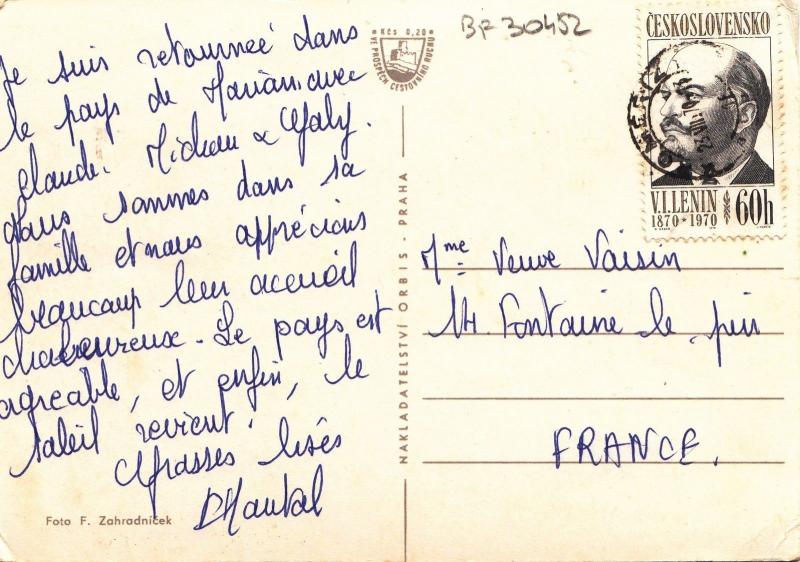 Je suis retournée dans
le pays de Marian avec
Claude. Michou & Gaby.
Nous sommes dans sa
famille et nous apprécions
beaucoup leur accueil
chaleureux. Le pays est
agréable, et enfin, le
soleil revient.
Grosses bises
Chantal
Foto F. Zahradníček
NAKLADATELSTVÍ ORBIS - PRAHA
Kčs 0,20
VE PROSPĚCH CESTOVNÍHO RUCHU
BF 30452
ČESKOSLOVENSKO
V.I.LENIN
1870*1970
60h
Mme Veuve Voisin
14. Fontaine le pin
FRANCE.